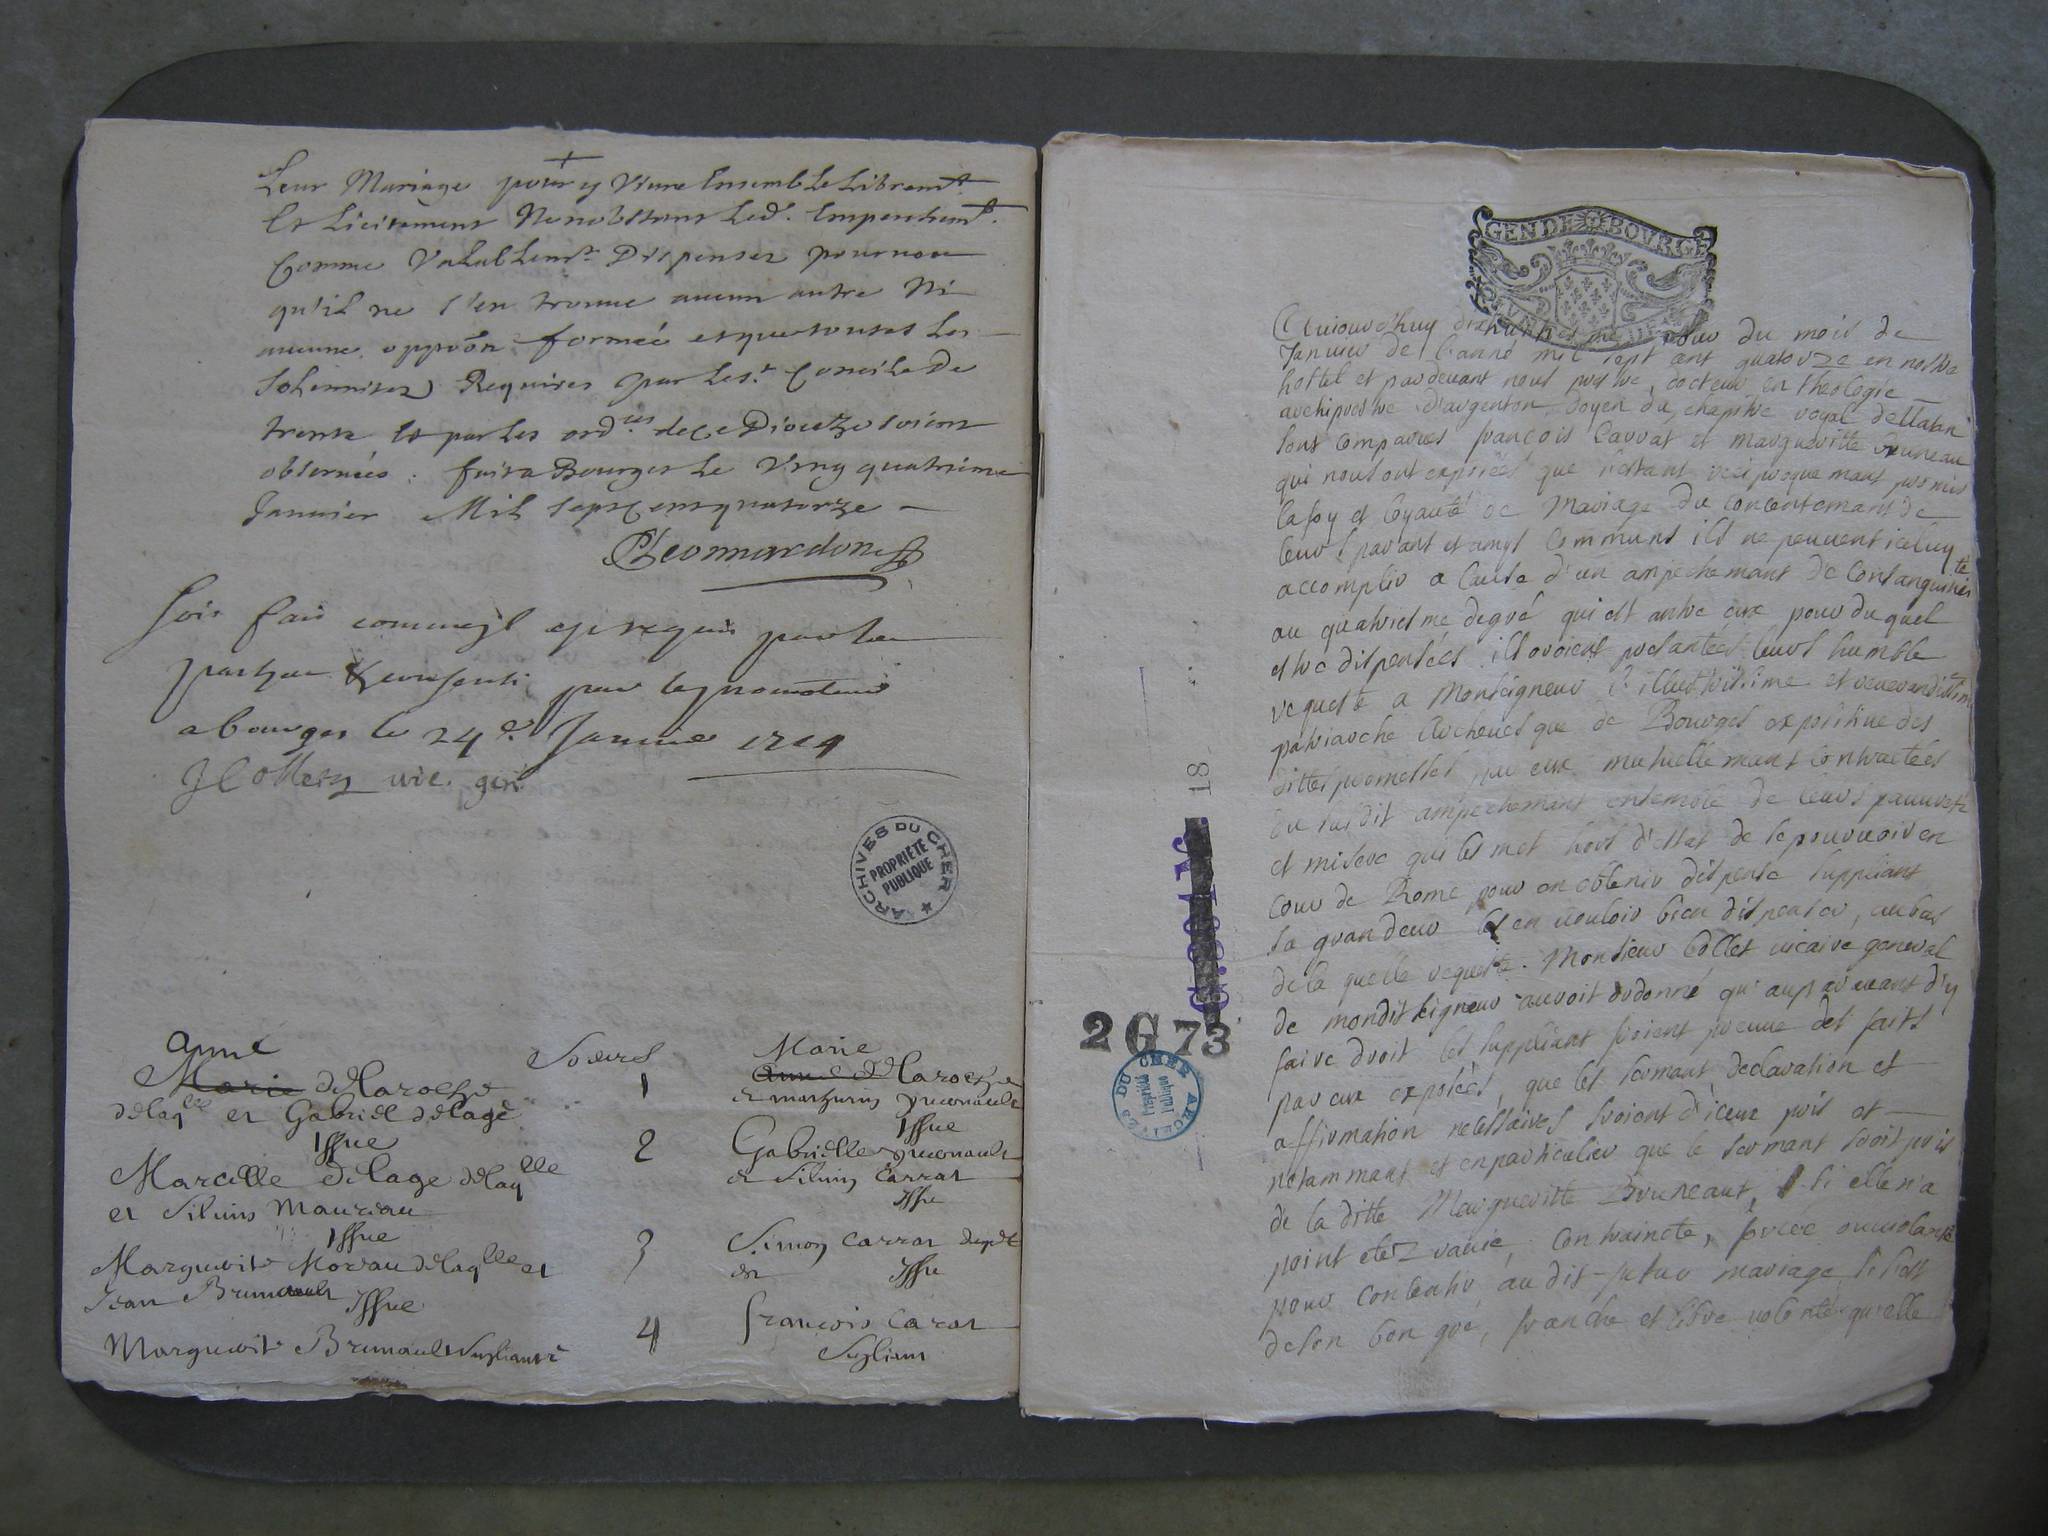 Leur Mariage pour y Viure Ensemble Libremt
Et Licitement Nonobstant Led. Empeschemt.
Comme Valablemt. Dispensez pourveu
qu'il ne s'en trouue aucun autre Ni
aucune oppoon formée et que toutes les
solemnitez Requises par le st. Concile De
trente et par les ordces de ce Diocèze soient
obseruées. fait a Bourges Le Vingt quatrieme
Januier Mil Sept Cens quatorze
Leonnardon
soit fait comme il est requis par les
parties & consenti par le promoteur
a bourges le 24e. Januier 1714
J Collesz vic. gnl.
ARCHIVES DU CHER
PROPRIÉTÉ
PUBLIQUE
Anne
Marie delaroche
delaqlle et Gabriel delage
Issue
Marcelle delage delaqlle
et Siluin Mauriau
Issue
Marguerite Moreau delaqlle et
Jean Brunault
Issue
Marguerite Brunault Supliante
Soeurs
1
2
3
4
Marie
Anne delaroche
et mathurin
Issue
Gabrielle
et Siluin Carrat
Issue
Simon Carrat duquel
est Issue
francois Carat
Supliant
GEN DE BOVRGE
2 G 73
18
ARCHIVES DU CHER
Aujourd'huy jour du mois de
Januier de l'anné mil sept cent quatorze en nostre
hostel et pardeuant nous prestre, docteur en theologie
archiprestre d'argenton doyen du chapitre royal
sont comparus françois Carrat et margueritte Bruneau
qui nous ont exposés que s'estant reciproquemant promis
la foy et loyauté de Mariage du consentemant de
leurs parants et amys communs ils ne peuuent iceluy
accomplir a cause d'un ampechemant de consanguinité
au quatriesme degré qui est antre eux pour duquel
estre dispensés ils auoient presantées leurs humble
requeste a Monseigneur l'illustrissime et reuerandissime
patriarche Archeuesque de Bourges expositiue des
dittes promesses par eux mutuellemant contractées
du susdit ampechemant ensemble de leurs pauureté
et misere qui les met hors d'estat de se pouruoir en
cour de Rome pour en obtenir dispense suppliant
sa grandeur les en uouloir bien dispenser, au bas
de la quelle requeste. Monsieur Collet uicaire general
de mondit seigneur auroit ordonné qu'auparauant d'y
faire droit les suppliant feroient preuue des faits
par eux exposées, que les sermant declaration et
affirmation necessaires seroient d'iceux pris et
notammant et en particulier que le sermant seroit pris
de la ditte Margueritte Bruneaut, si elle n'a
point etez rauie, contrainte, forcée ou uiolantée
pour consentir au dit futur mariage, si s'est
de son bon gré, franche et libre volonté qu'elle